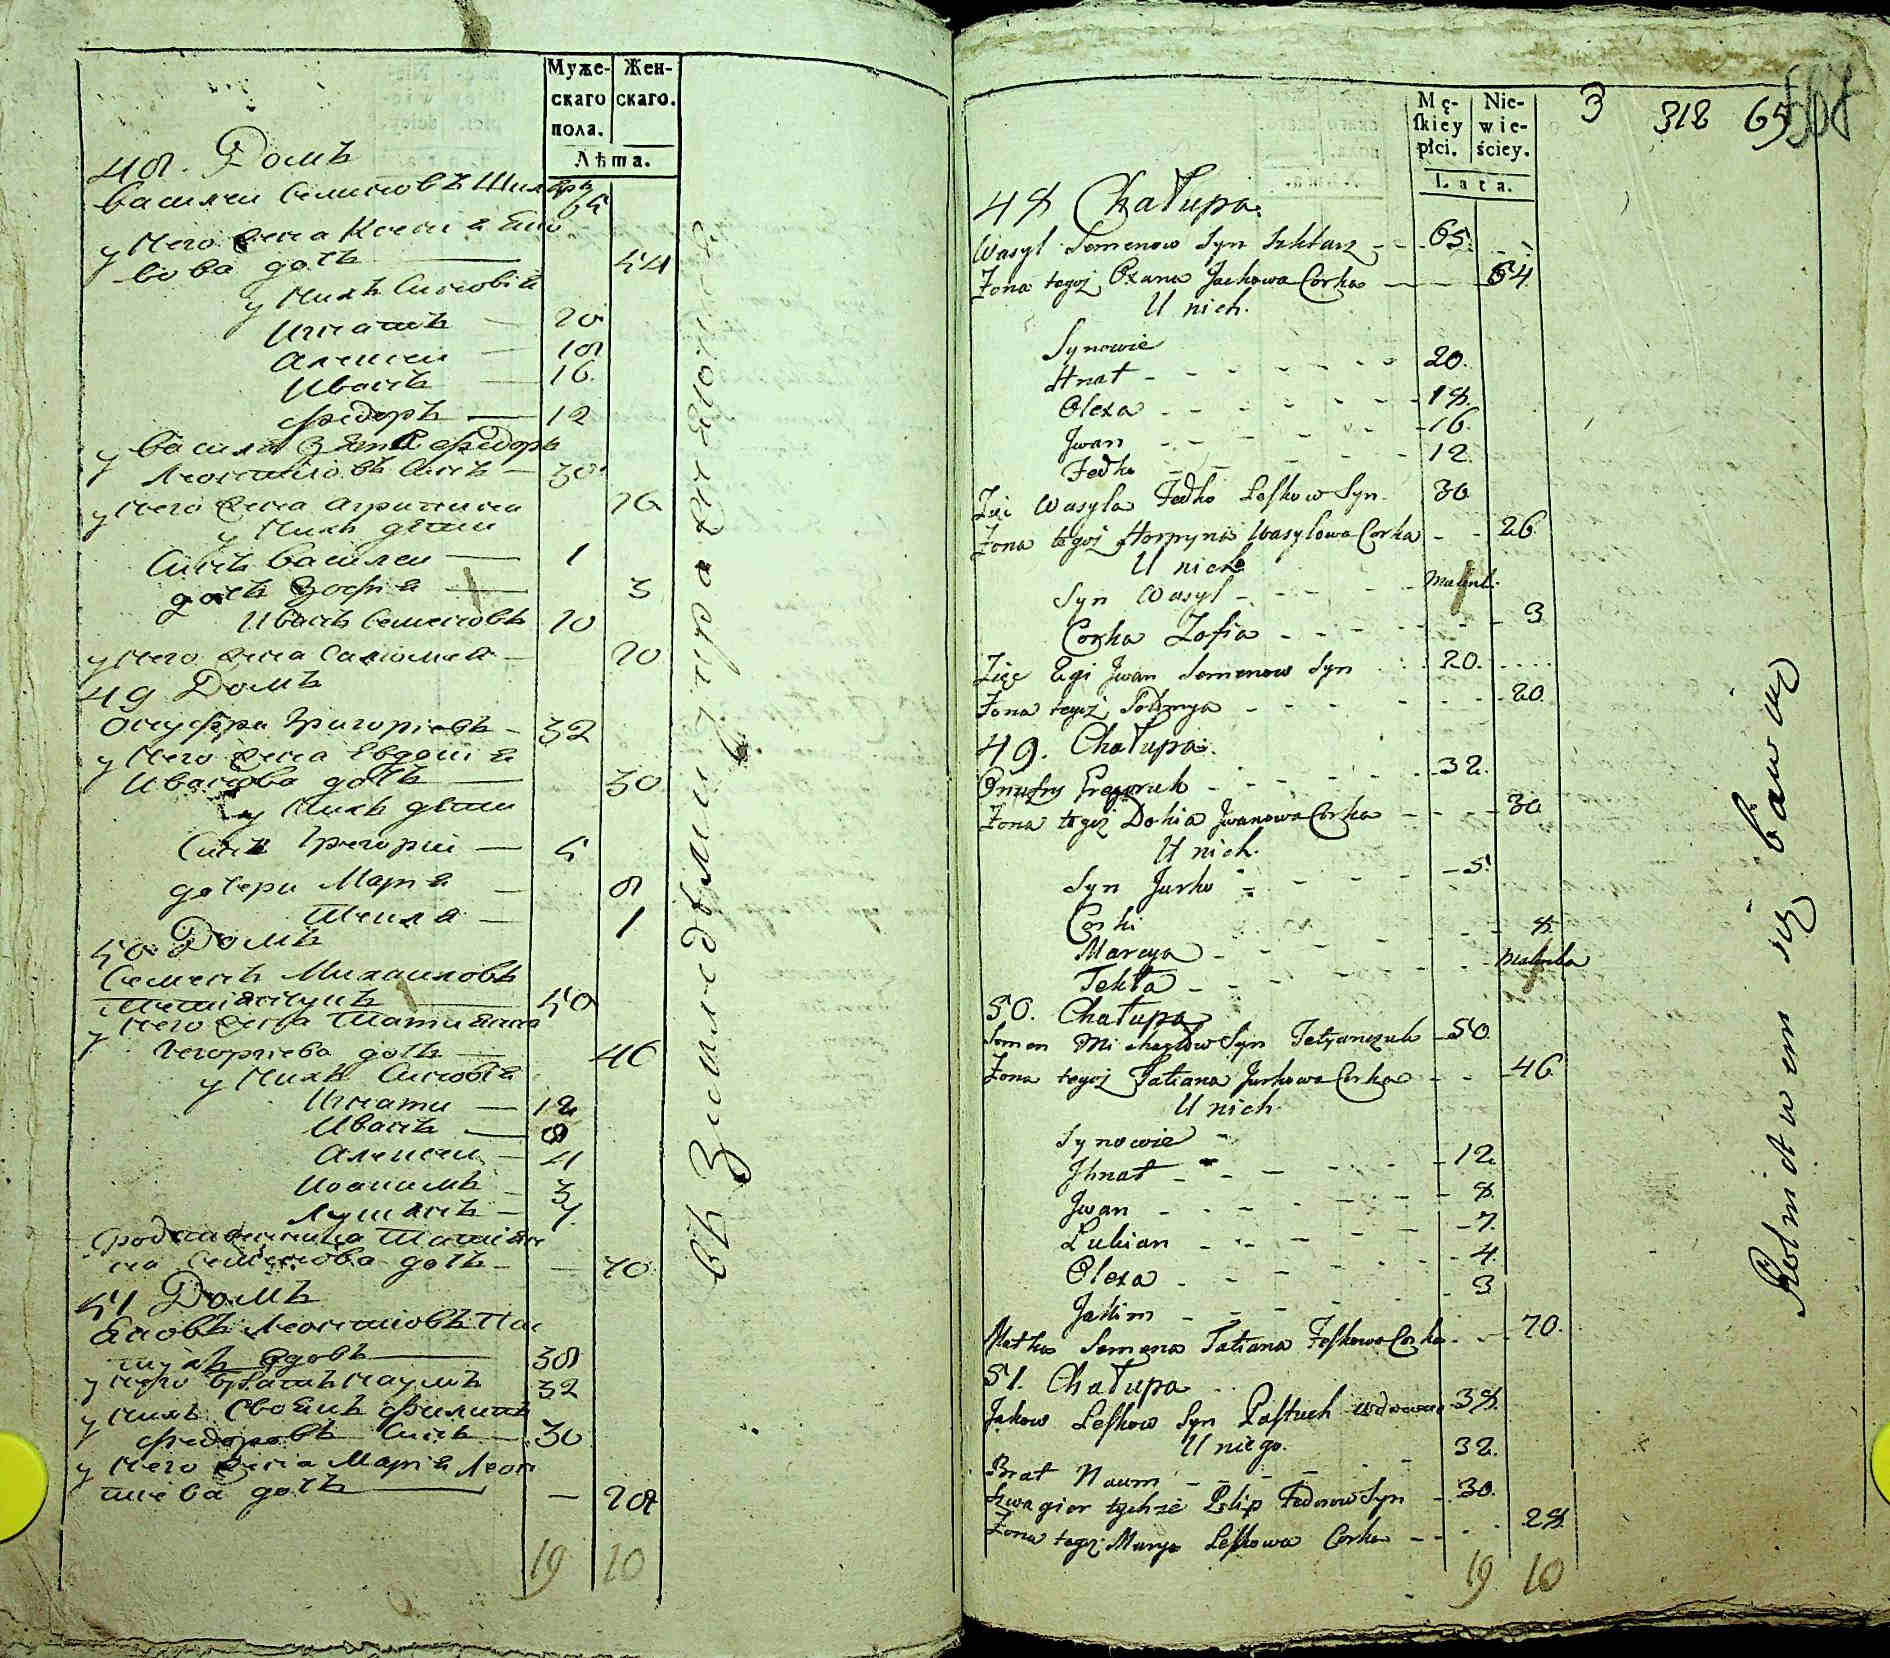 Муже-
скаго
пола.
Жен-
скаго.
Лѣта.
48. Домъ
Василеи Семионовъ
65
у него жена
вова дочь 54
у нихъ Синовія
Игнатъ — 20
Алексеи — 18
Иванъ — 16
Федоръ — 12
у Василя Зять Федоръ
Леонтиіовъ Синъ — 30
у него жена Агрипина 26
у нихъ дѣти
Синъ Василеи — 1
дочь Зофія — 3
Иванъ Семеновъ 20
у него жена Саломея — 20
49 Домъ
Онуфри Григоріевъ — 32
у него жена Евдокія
Иванова дочь — 30
у нихъ дѣти
Синъ Григории — 5
дочери Марія — 8
Текля — 1
50 Домъ
Семенъ Михаиловъ
Тетіанчукъ — 50
у него жена Татияна
дочь — 46
у нихъ Синовія
Игнати — 12
Иванъ — 8
Алексеи — 4
Иоакимъ — 3
Лукіанъ — 7
на Семенова дочь — 70
51 Домъ
Яковъ Леонтиіовъ Пас
тухъ вдовъ — 38
у него братъ Наумъ 32
у нихъ Своякъ Филипъ
Федоровъ Синъ — 30
у него жена Марія Леон
тиева дочь — 28
19 10
въ Земледѣлии упражняюися
Mę-
skiey
płci.
Nie-
wie-
ściey.
Lata.
3 318 65
48 Chałupa.
Wasyl Semenow Syn Szklarz - - 65.
Żona tegoż Oxana Jackowa Corka — 54
U nich.
Synowie
Hnat - - - 20.
Olexa - - - 18.
Jwan - - - 16.
Fedko - - - 12.
Zię Wasyla Fedko Leskow Syn. 30
Żona tegoż Horpyna Wasylowa Corka - - 26.
U nich
Syn Wasyl - - -
Corka Zofia - - - 3
Zięc Jwan Semenow Syn 20.
Żona tegoż - - - 20.
49. Chałupa.
Onufry Hregoruk - - - 32.
Żona tegoż Dokia Jwanowa Corka - - - 30
U nich.
Syn Jurko - - - 5.
Corki
Marya - - - 8.
Tekla - - - Malenka
50. Chałupa
Semen Michayłow Syn Tetyanczuk - 50.
Żona tegoż Tatiana Jurkowa Corka - - - 46.
U nich.
Synowie -
Jhnat - - - 12
Jwan - - - 8.
Lukian - - - 7.
Olexa - - - 4.
Jakim - - - 3
Matka Semena Tatiana Corka - - - 70.
51. Chałupa
Jakow Leskow Syn Pastuch wdowiec 38.
U niego. 32.
Brat Naum - - -
Szwagier tychże Pilip Fedorow Syn - 30.
Żona tegoż Marya Leskowa Corka - - - 28.
19 10
Rolnictwem się bawią